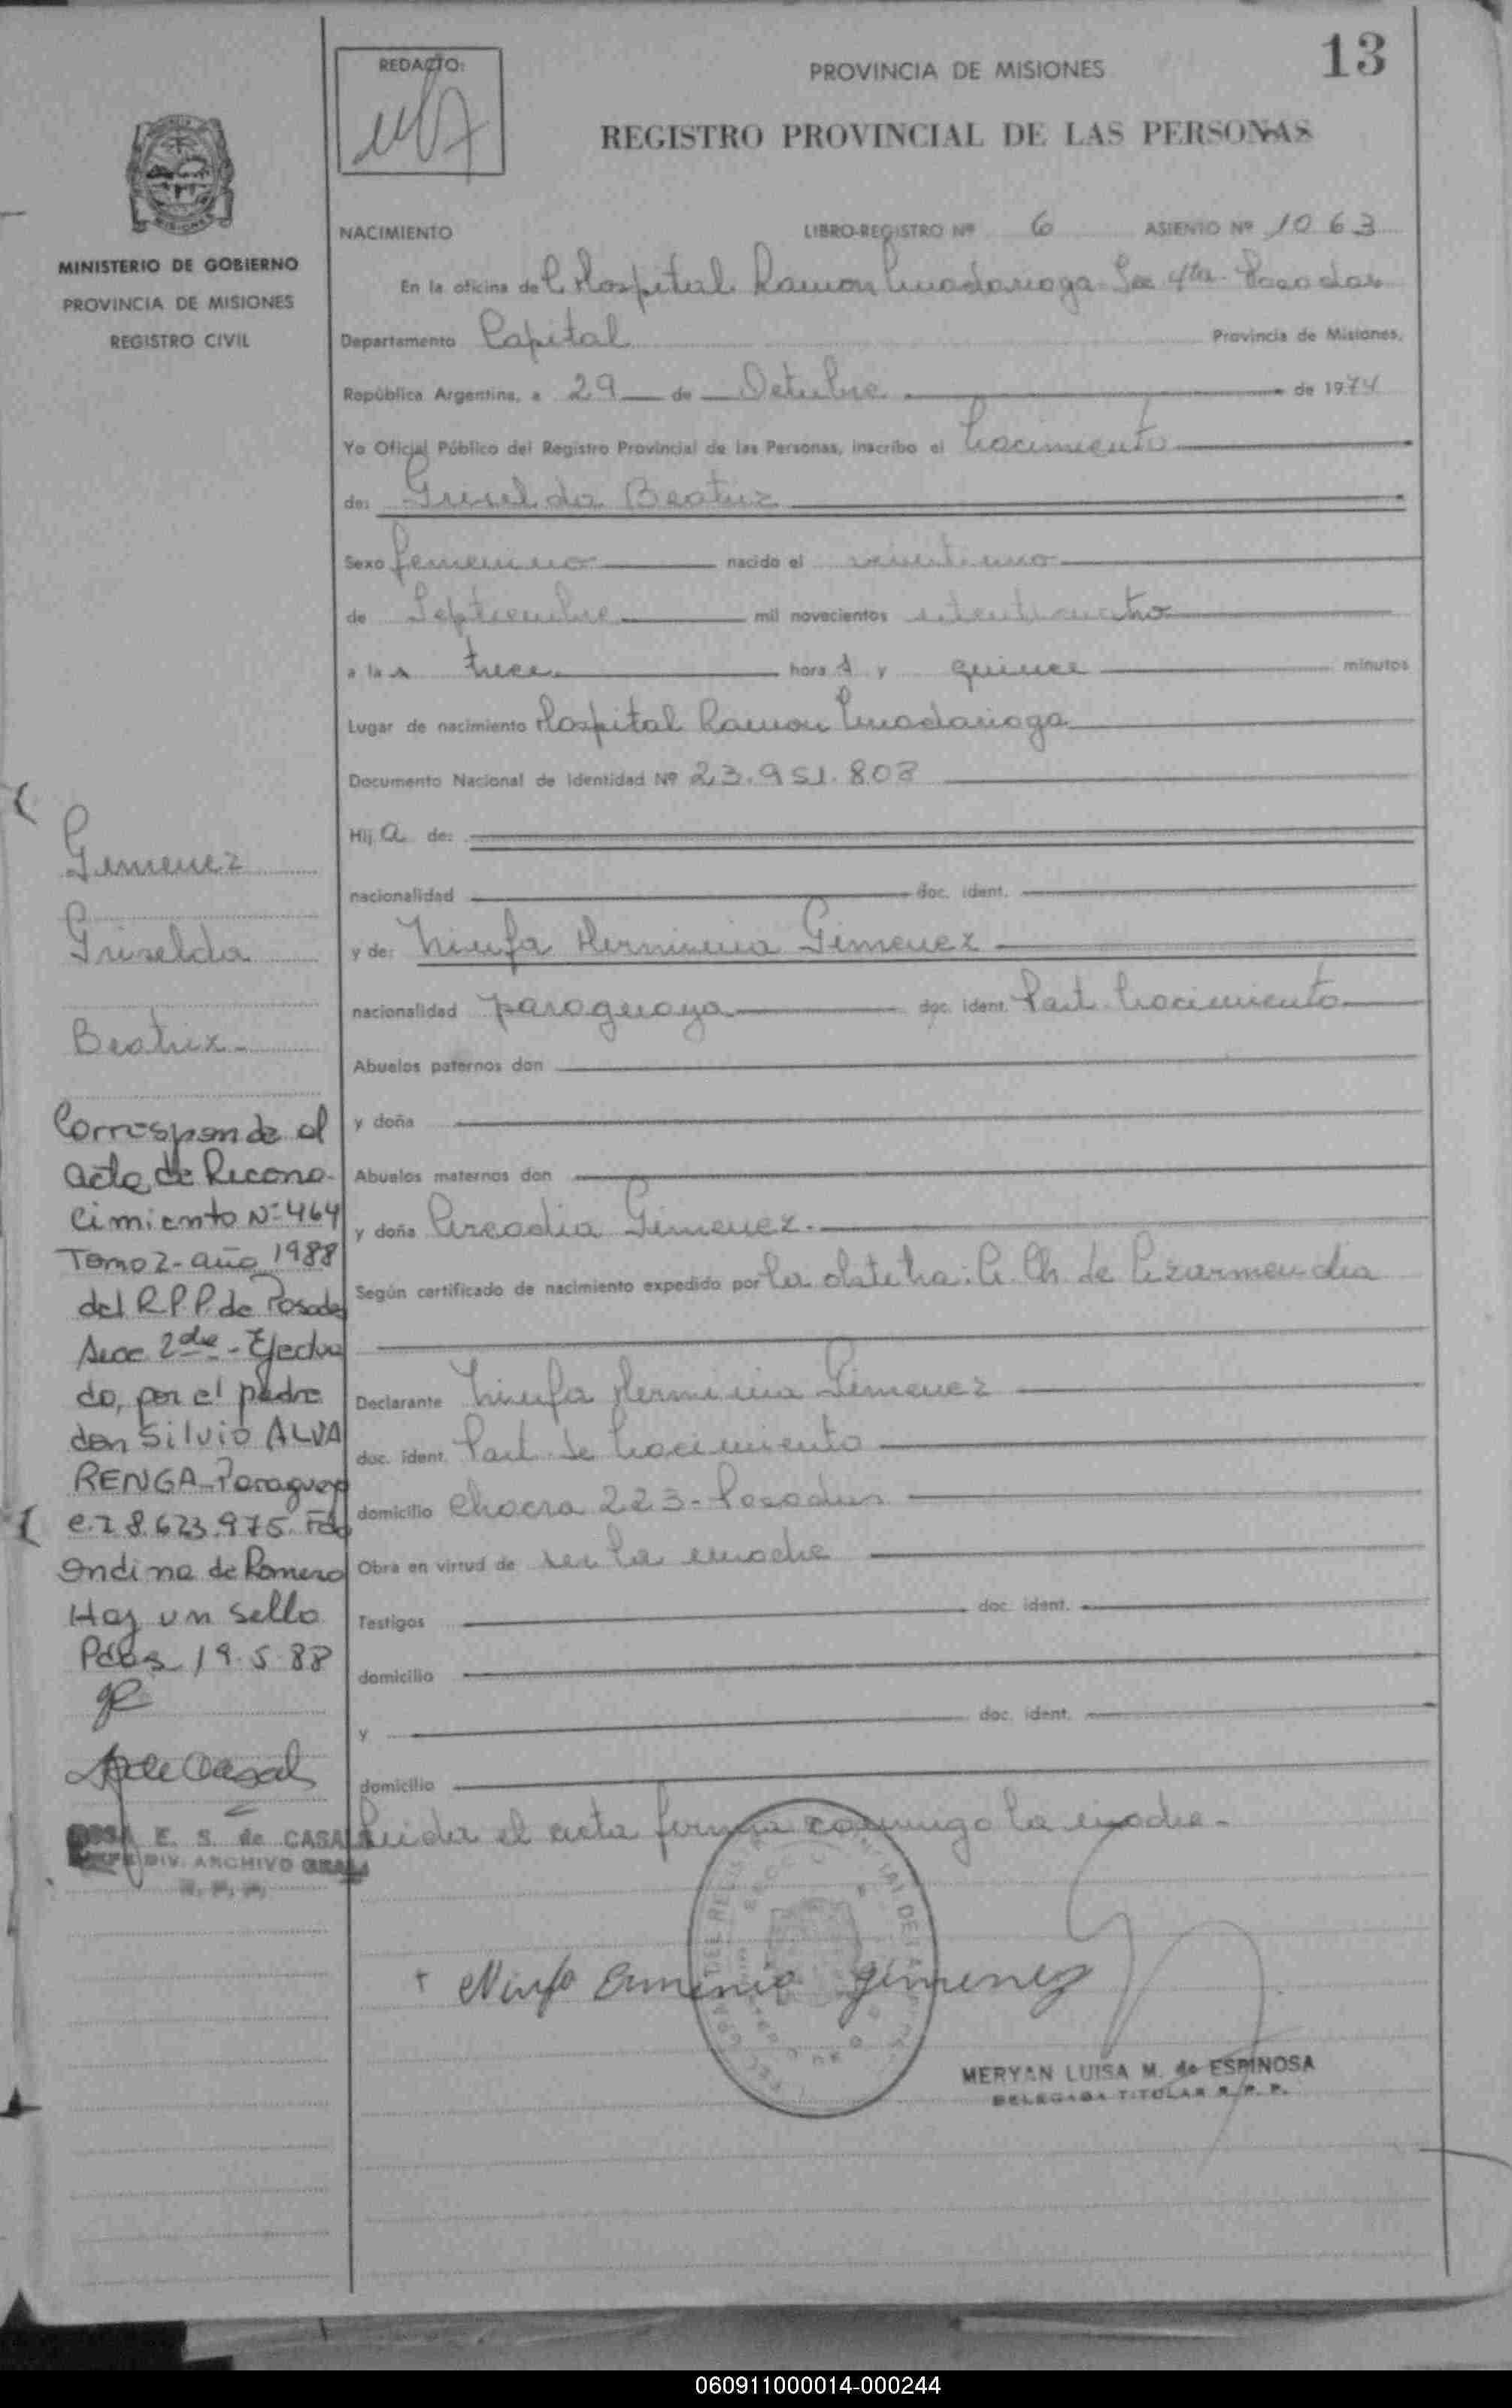 13
REDACTO:
PROVINCIA DE MISIONES
REGISTRO PROVINCIAL DE LAS PERSONAS
MINISTERIO DE GOBIERNO
PROVINCIA DE MISIONES
REGISTRO CIVIL
NACIMIENTO LIBRO-REGISTRO Nº 6 ASIENTO Nº 1063
En la oficina del Hospital Ramon Madariaga Sec 4ta Posadas
Departamento Capital Provincia de Misiones.
República Argentina, a 29 de Octubre de 1974
Yo Oficial Público del Registro Provincial de las Personas, inscribo el nacimiento
de: Griselda Beatriz
Sexo femenino nacido el veintiuno
de Septiembre mil novecientos setenticuatro
a las trece horas y quince minutos
Lugar de nacimiento Hospital Ramon Madariaga
Documento Nacional de Identidad Nº 23.951.808
Hija de:
nacionalidad doc. ident.
y de: Ninfa Herminia Gimenez
nacionalidad paraguaya doc. ident. Part. nacimiento
Abuelos paternos don
y doña
Abuelos maternos don
y doña Arcadia Gimenez.
Según certificado de nacimiento expedido por la obstetra: Ch. de
Declarante Ninfa Herminia Gimenez
doc. ident. Part de nacimiento
domicilio Chacra 223-Posadas
Obra en virtud de ser la madre
Testigos doc. ident.
domicilio
y doc. ident.
domicilio
Leida el acta firma conmigo la madre-
Ninfa Erminia Gimenez
MERYAN LUISA M. de ESPINOSA
DELEGADA TITULAR R. P. P.
Gimenez
Griselda
Beatriz-
Corresponde al
acta de Recono-
cimiento Nº 464
Tomo 2-año 1988
del R.P.P. de Posadas
Secc 2da - Efectua
do, por el padre
don Silvio ALVA
RENGA-Paraguayo
C.I 8.623.975. Fdo
Ondina de Romero
Hay un sello
Pdas 19.5.88
E. S. de CASAL
JEFE DIV. ARCHIVO GRAL
R. P. P.
060911000014-000244